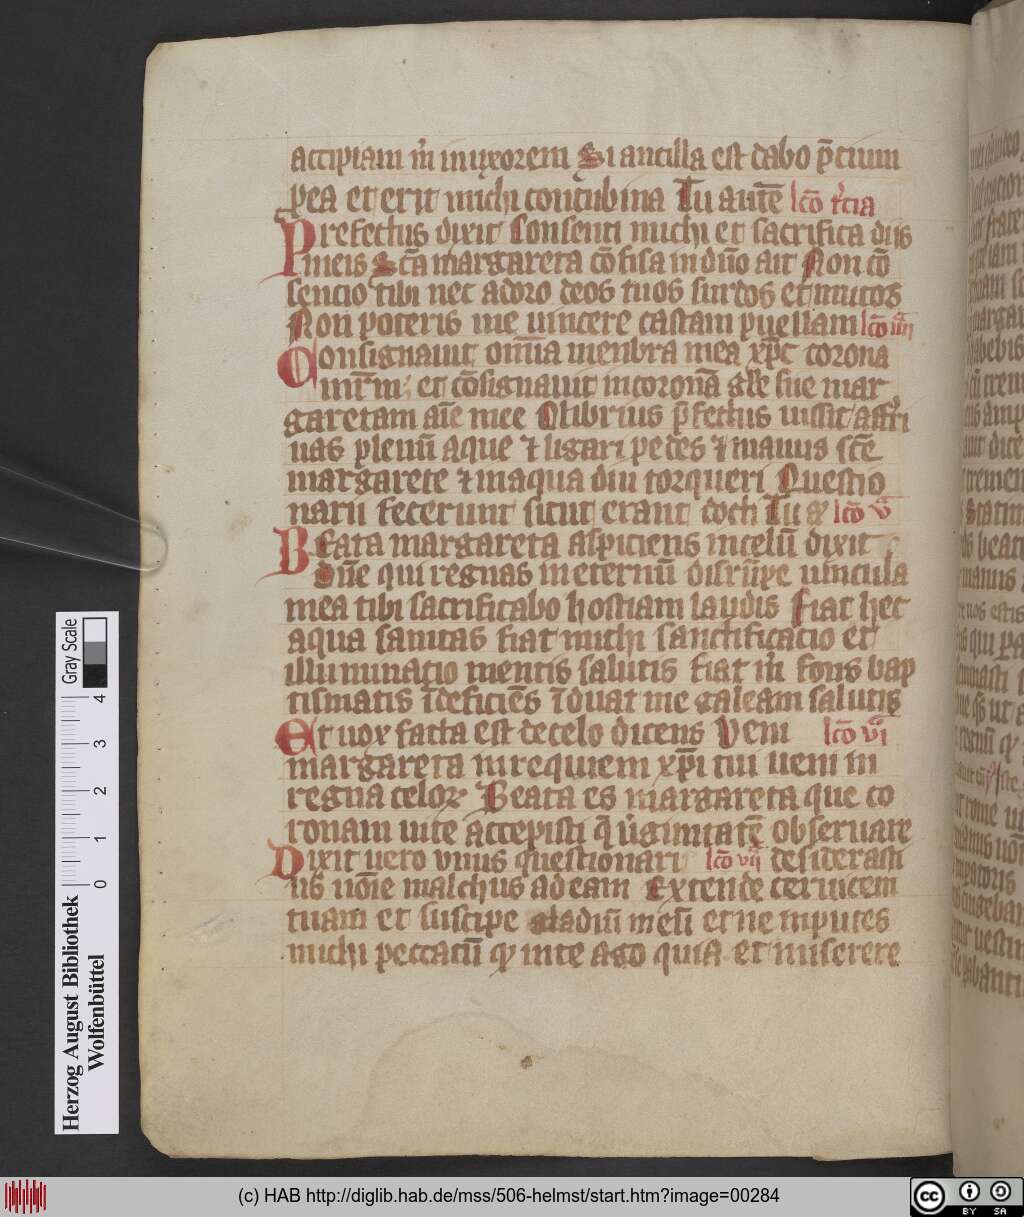 accipiam m̄ in uxorem Si ancilla est dabo p̄cium
pea et erit michi concubina Tu autē lc̄o t͛cia
Prefectus dixit Consenti michi et sacrifica diis
meis Sc̄a margareta cōfisa in dn̄o ait Non cō
sencio tibi nec adoro deos tuos surdos et mutos
Non poteris me uincere castam puellam lc̄o iiii
Consignauit om̄ia menbra mea xp̄c corona
inr̄m; et cōsignauit in coronā gl̄e sue mar
garetam aīe mee Olibrius p̄fectus iussit afferi
uas plenū aque ⁊ ligari pedes ⁊ manus sc̄e
margarete ⁊ in aqua diu torqueri Questio
narii fecerunt sicut erant docti Tu a lc̄o v
Beata margareta aspiciens in celū dixit
dn̄e qui regnas in eternū disrūpe uincula
mea tibi sacrificabo hostiam laudis fiat hec
aqua sanitas fiat michi sanctificacio et
illuminacio mentis salutis fiat m̄ fons bap
tismatis īdeficiēs īduat me galeam salutis
Et uox facta est de celo dicens Veni lc̄o vi
margareta in requiem xp̄i tui ueni in
regna celoꝝ Beata es margareta que co
ronam uite accepisti q̄ uiginitatē obseruare
Dixit uero vnus questionari lc̄o vii desiderasti
us noīe malchus ad eam Extende ceruicem
tuam et suscipe gladiū meū et ne inputes
michi peccatū qꝫ in te ago quia et miserere
Gray Scale
0 1 2 3 4
Herzog August Bibliothek
Wolfenbüttel
(c) HAB http://diglib.hab.de/mss/506-helmst/start.htm?image=00284
cc BY SA